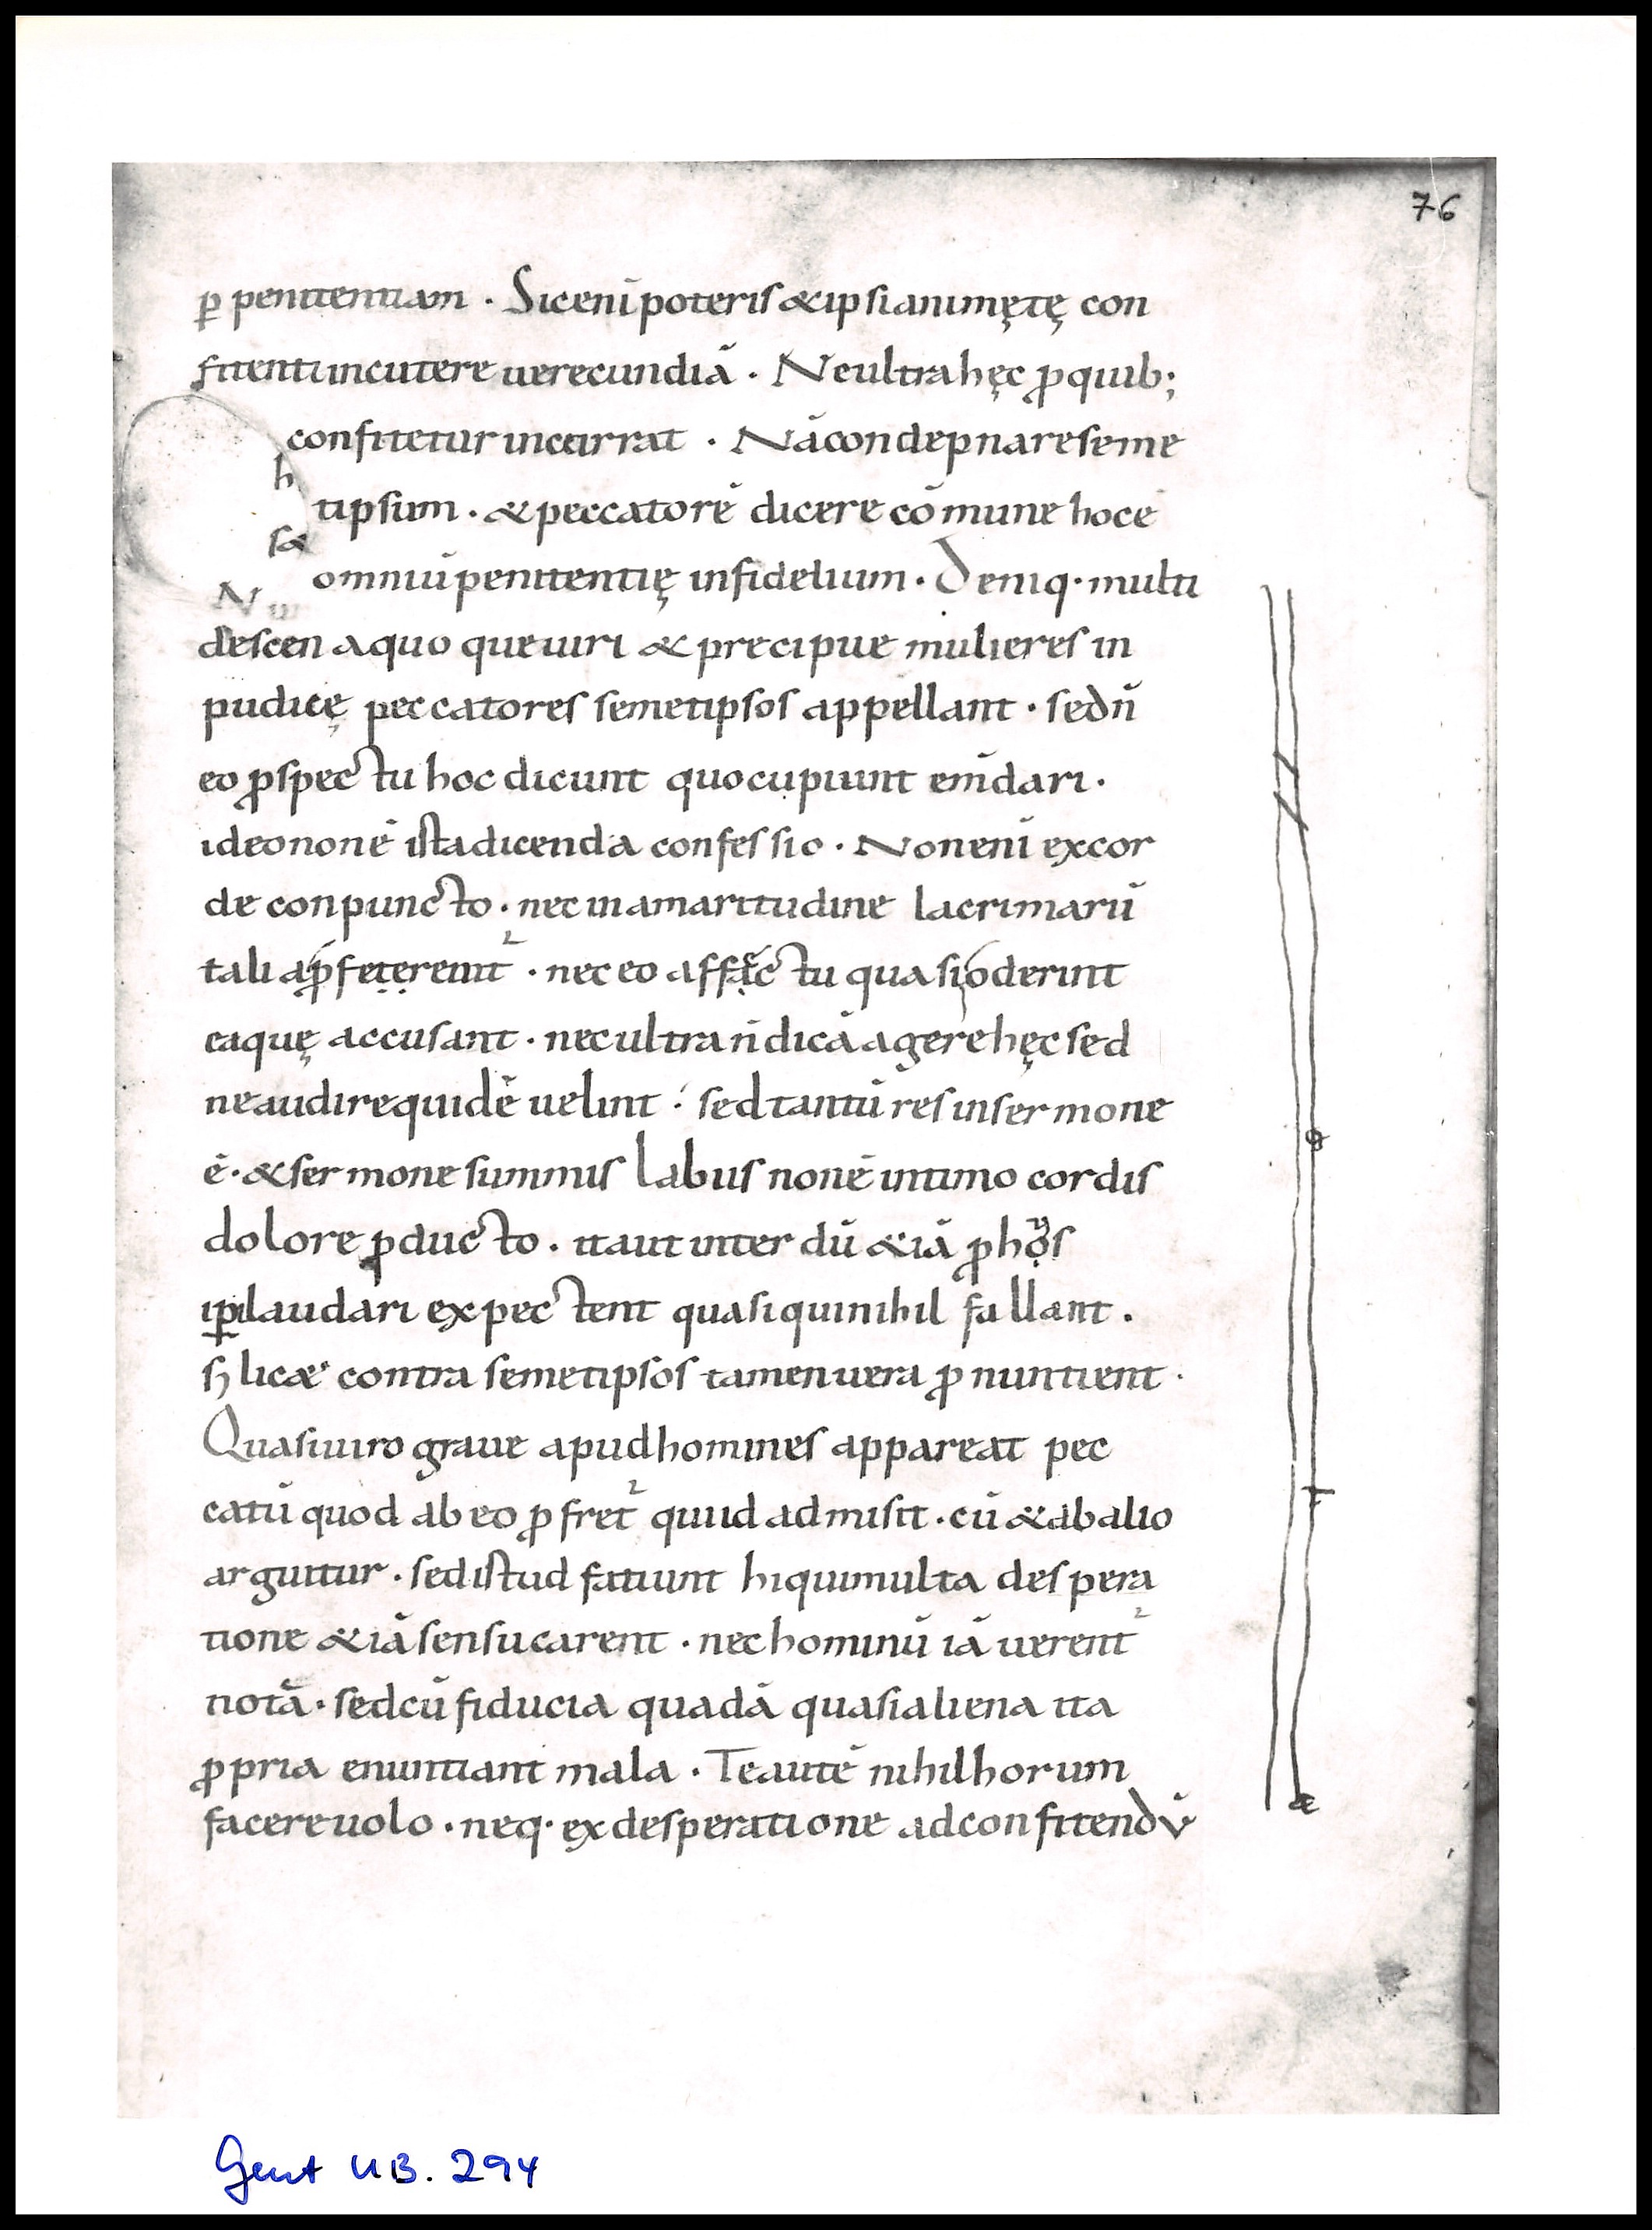 76
p̱ penitentiam · Sic enī poteris & ipsi animę tę con
fitenti incutere uerecundiā · Ne ultra hęc ꝓ quib;
confitetur incurrat · Nā condepnare seme
h
tipsum · & peccatorē dicere cōmune hoc ē
sa
omniū penitentię infidelium · Deniq· multi
N
descen a quo que uiri & precipue mulieres in
pudicę peccatores semetipsos appellant · sed n̄
eo ꝓspectu hoc dicunt quo cupiunt em̄dari ·
ideo non ē ista dicenda confessio · Non enī ex cor
de conpuncto · nec in amaritudine lacrimarū
tali a ꝓfeterent᷑ · nec eo affectu quasi oderint
ea quę accusant · nec ultra n̄ dicā agere hęc sed
ne audire quidē uelint · sed tantū res in sermone
ē · & sermone summis labiis non ē intimo cordis
dolore ꝓducto · ita ut inter dū & iā ꝓ hos
ip̄i laudari expectent quasi qui nihil fallant ·
s; lic& contra semetipsos tamen uera ꝓnuntient ·
Quasi uiro graue apud homines appareat pec
catū quod ab eo ꝓfret᷑ quiid admisit · cū & ab alio
arguitur · sed istud fatiunt hi qui multa despera
tione & iā sensu carent · nec hominū iā uerent᷑
notā · sed cū fiducia quadā quasi aliena ita
ꝓpria enuntiant mala · Te autē nihil horum
facere uolo · neq· ex desperatione ad confitendū
Gent UB. 294